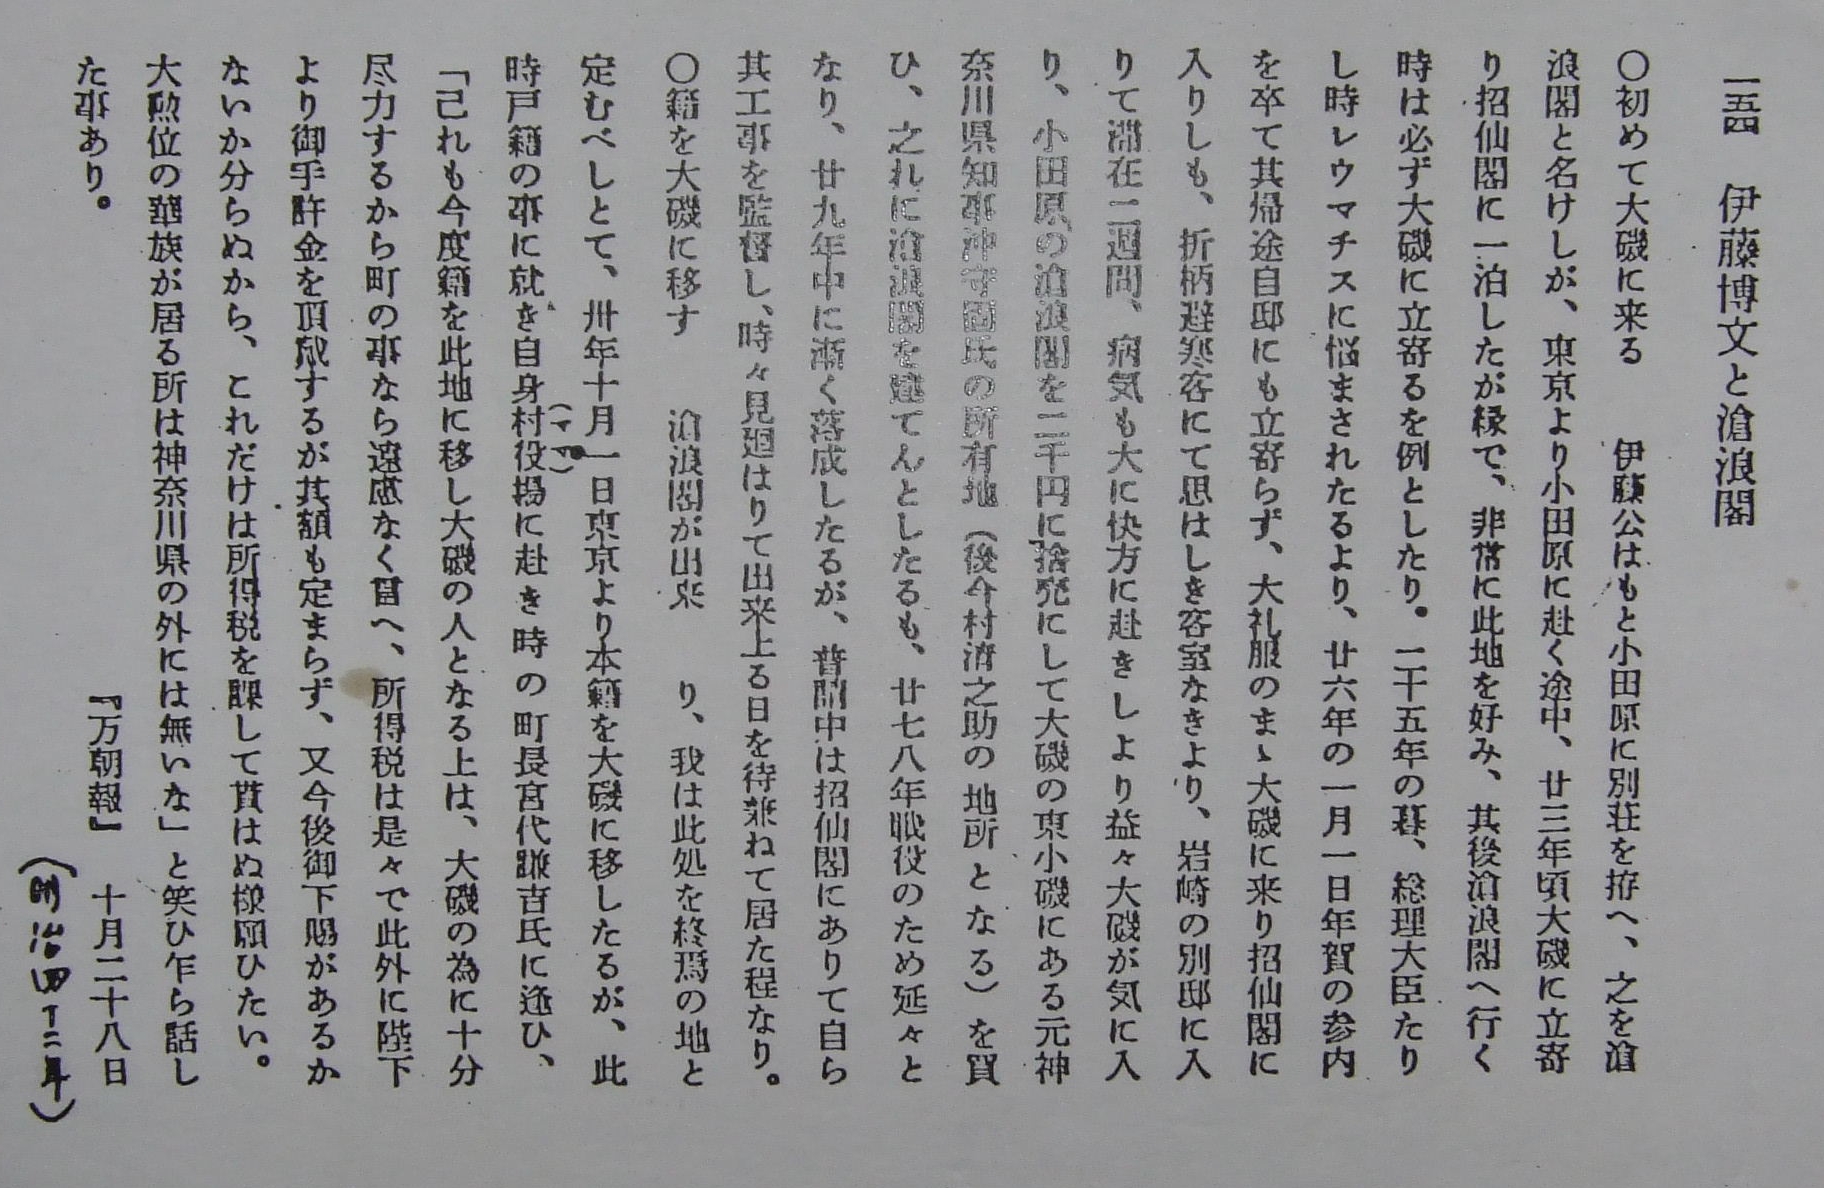 一五四　伊藤博文と滄浪閣
〇初めて大磯に来る　　伊藤公はもと小田原に別荘を拵へ、之を滄
浪閣と名けしが、東京より小田原に赴く途中、廿三年頃大磯に立寄
り招仙閣に一泊したが縁で、非常に此地を好み、其後滄浪閣へ行く
時は必ず大磯に立寄るを例としたり。二十五年の暮、総理大臣たり
し時レウマチスに悩まされたるより、廿六年の一月一日年賀の参内
を卒て其帰途自邸にも立寄らず、大礼服のまゝ大磯に来り招仙閣に
入りしも、折柄避寒客にて思はしき客室なきより、岩崎の別邸に入
りて滞在二週間、病気も大に快方に赴きしより益々大磯が気に入
り、小田原の滄浪閣を二千円に捨売にして大磯の東小磯にある元神
奈川県知事沖守固氏の所有地（後今村清之助の地所となる）を買
ひ、之れに滄浪閣を建てんとしたるも、廿七八年戦役のため延々と
なり、廿九年中に漸く落成したるが、普請中は招仙閣にありて自ら
其工事を監督し、時々見廻はりて出来上る日を待兼ねて居た程なり。
〇籍を大磯に移す　　滄浪閣が出来　　り、我は此処を終焉の地と
定むべしとて、卅年十月一日東京より本籍を大磯に移したるが、此
時戸籍の事に就き自身村役場(ママ)に赴き時の町長宮代謙吉氏に逢ひ、
「己れも今度籍を此地に移し大磯の人となる上は、大磯の為に十分
尽力するから町の事なら遠慮なく言へ、所得税は是々で此外に陛下
より御手許金を頂戴するが其額も定まらず、又今後御下賜があるか
ないか分らぬから、これだけは所得税を課して貰はぬ様願ひたい。
大勲位の華族が居る所は神奈川県の外には無いな」と笑ひ乍ら話し
た事あり。
『万朝報』　十月二十八日
(明治四十二年)